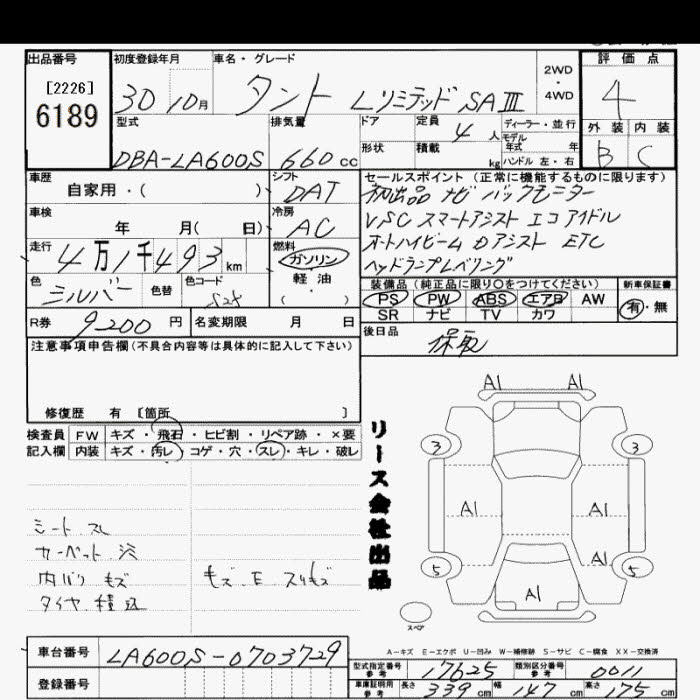 出品番号 初度登録年月 車名・グレード 2WD・4WD 評価点
[2226]
6189 30 10月 タント Lリミテッド SA III 4
型式 排気量 ドア 定員 4人 ディーラー・並行 外装 内装
モデル年式 年
DBA-LA600S 660cc 形状 積載 kg ハンドル 左・右 B C
車歴 シフト セールスポイント (正常に機能するものに限ります)
自家用・( ) DAT 初出品 ナビ バックモニター
車検 冷房 VSC スマートアシスト エコアイドル
年 月( 日) AC オートハイビーム Dアシスト ETC
走行 4万1千493km 燃料 ガソリン ヘッドランプレベリング
軽油
( )
色 シルバー 色替 色コード S28
装備品 (純正品に限り○をつけてください) 新車保証書
PS PW ABS エアB AW 有・無
SR ナビ TV カワ
R券 9200円 名変期限 月 日
後日品 保取
注意事項申告欄(不具合内容等は具体的に記入して下さい)
修復歴 有 [箇所 ]
検査員 FW キズ・飛石・ヒビ割・リペア跡・×要
記入欄 内装 キズ・汚レ・コゲ・穴・スレ・キレ・破レ
リース会社出品
A1 A1
3 3
A1 A1
A1
5 5
A1
スペア
シート スレ
カーペット 汚
内バリ キズ
タイヤ 積込
キズ E スリキズ
A-キズ E-エクボ U-凹み W-補修跡 S-サビ C-腐食 XX-交換済
車台番号 LA600S-0703729
登録番号
型式指定番号 参考 17625 類別区分番号 参考 0011
車庫証明用 参考 長さ 339cm 幅 147cm 高さ 175cm